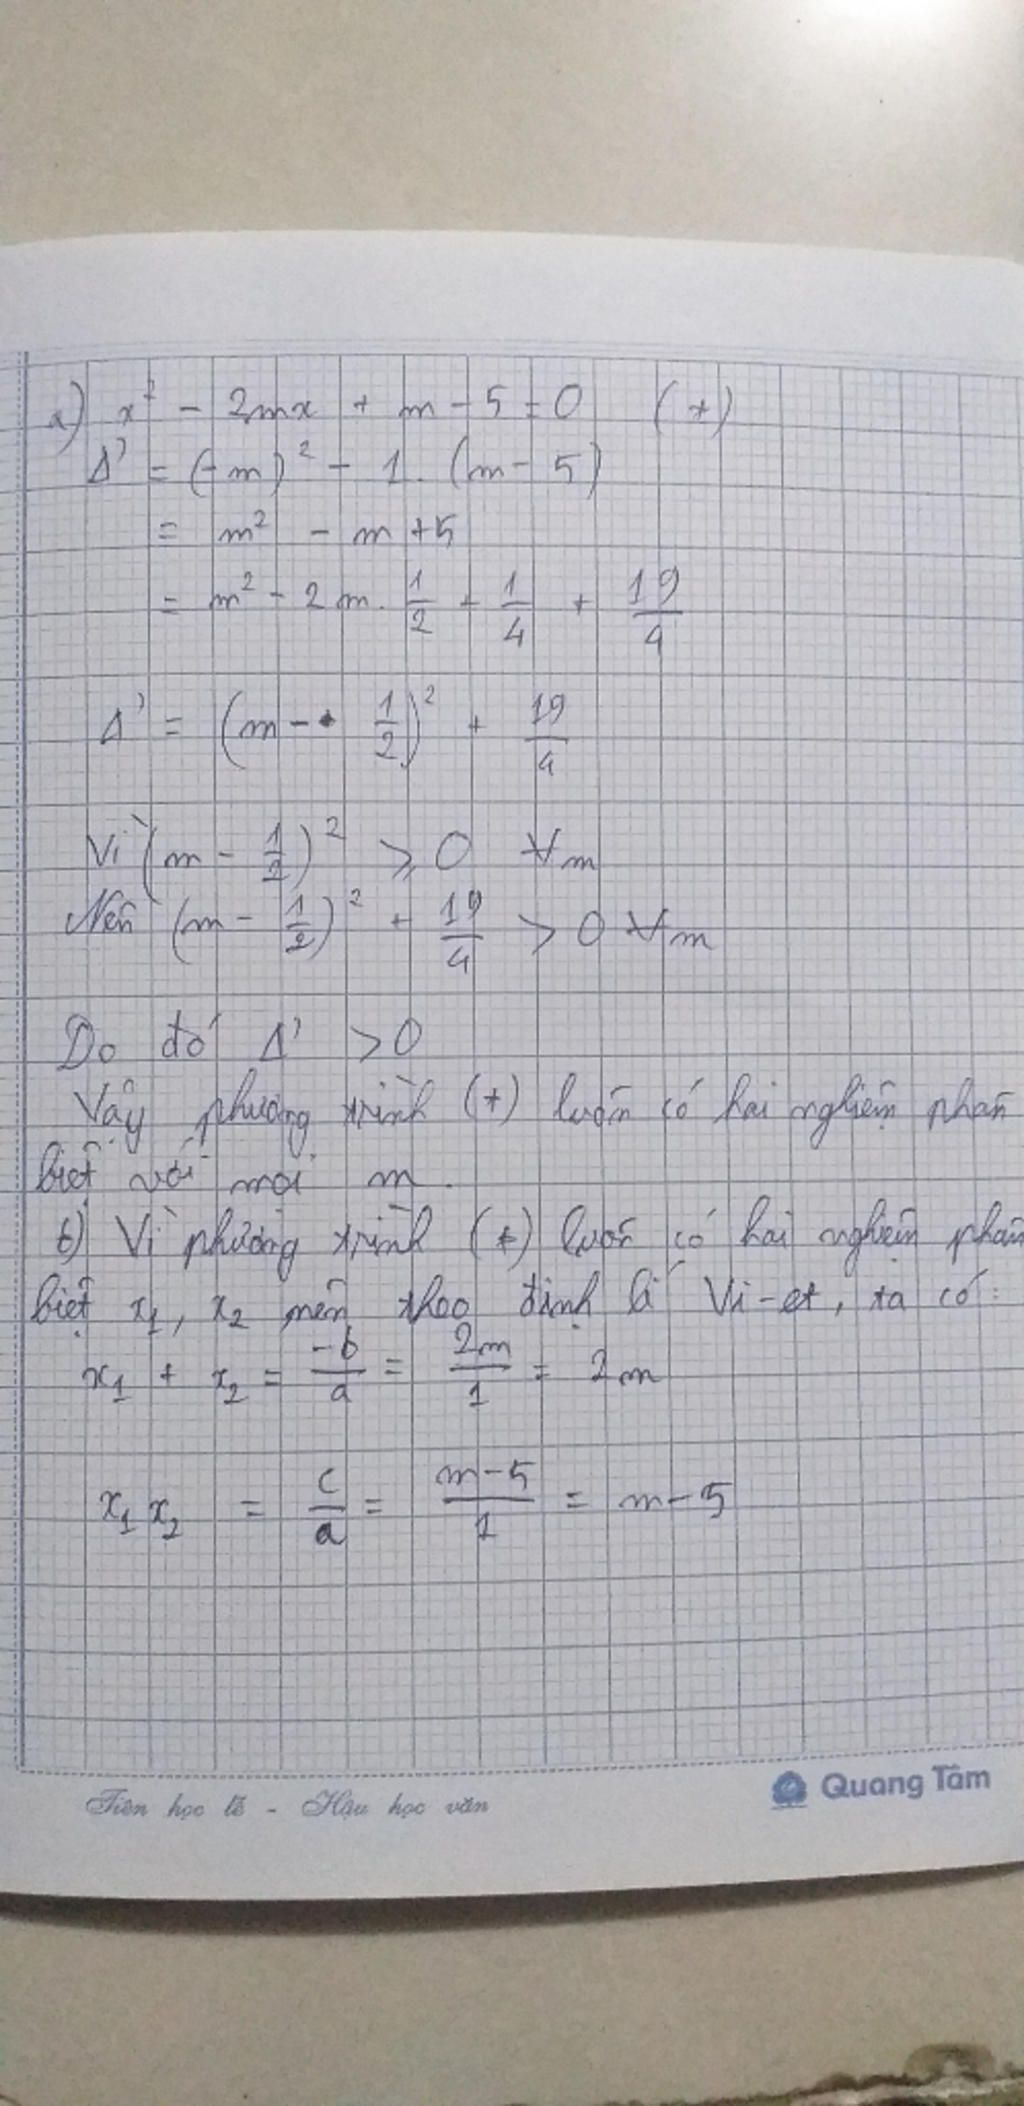 a) x² - 2mx + m - 5 = 0 (*)
Δ' = (-m)² - 1. (m - 5)
= m² - m + 5
= m² - 2m. 1/2 + 1/4 + 19/4
Δ' = (m - 1/2)² + 19/4
Vì (m - 1/2)² ⩾ 0 ∀m
Nên (m - 1/2)² + 19/4 > 0 ∀m
Do đó Δ' > 0
Vậy phương trình (*) luôn có hai nghiệm phân
biệt với mọi m.
b) Vì phương trình (*) luôn có hai nghiệm phân
biệt x₁, x₂ nên theo định lí Vi-et, ta có:
x₁ + x₂ = -b/a = 2m/1 = 2m
x₁ x₂ = c/a = m-5/1 = m-5
Tiên học lễ - Hậu học văn
Quang Tâm